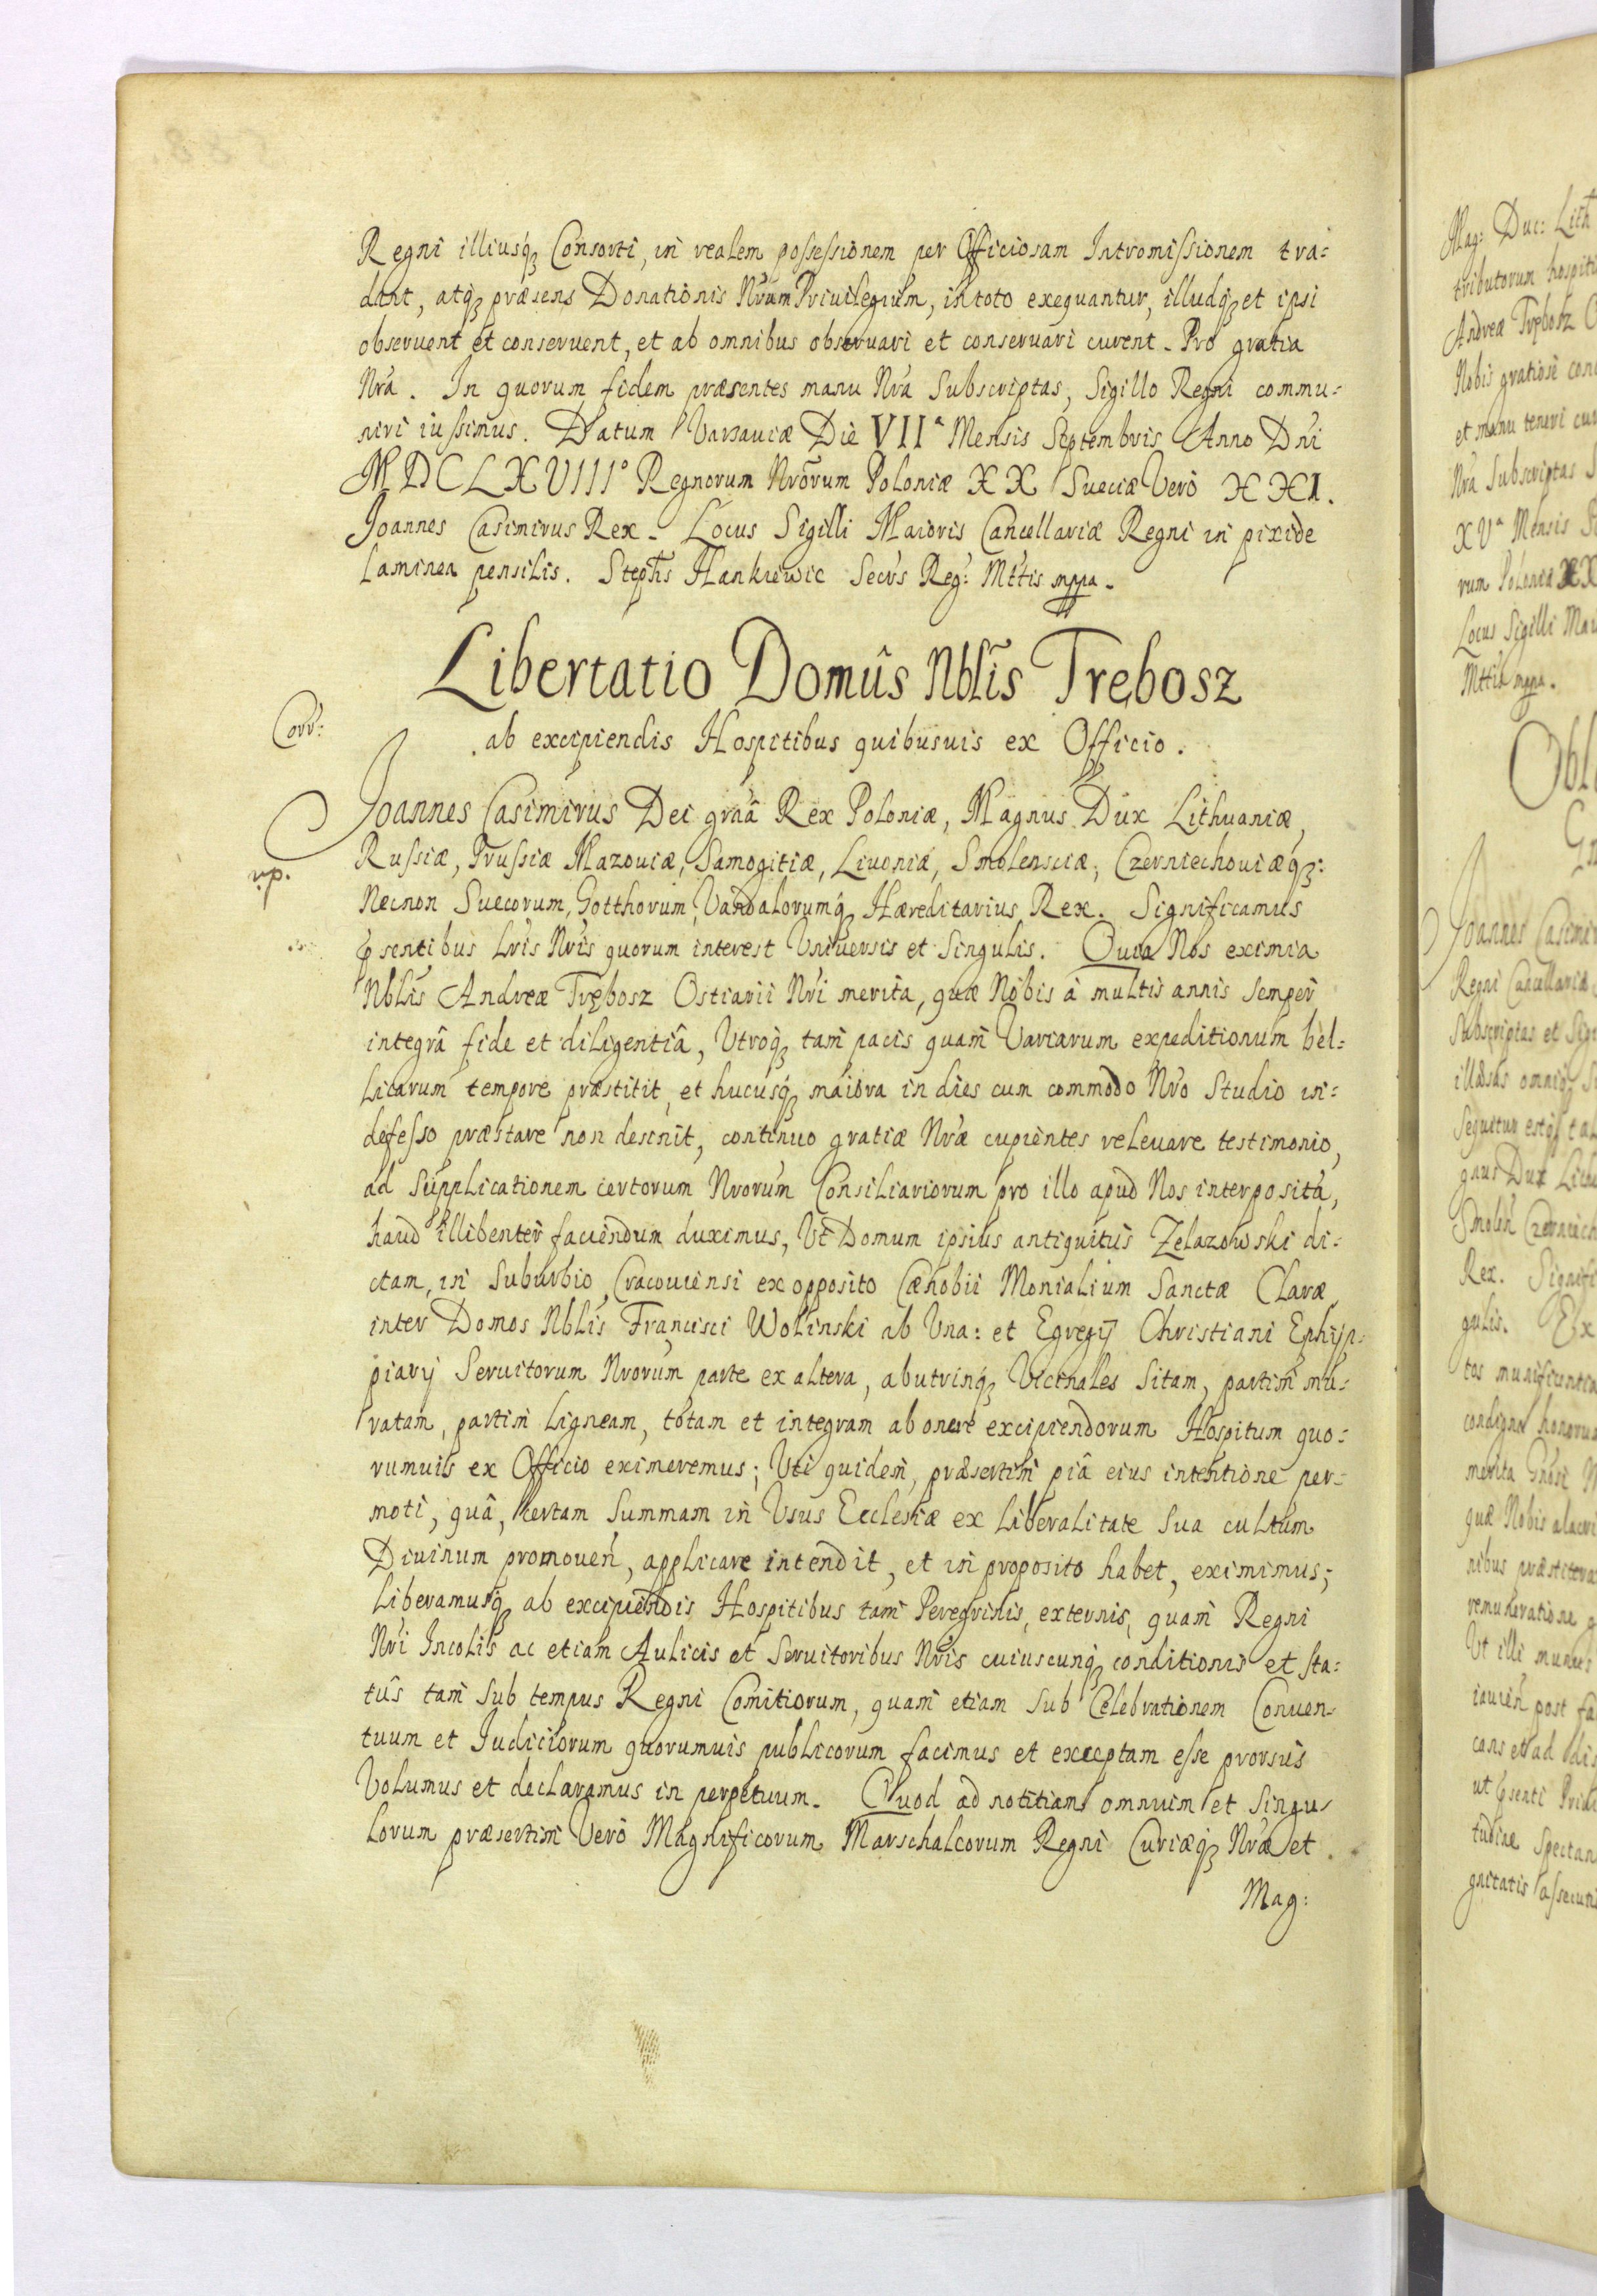 Regni illiusq₃ Consorti, in realem possessionem per Officiosam Intromissionem tra=
dant, atq₃ præsens Donationis Nrum Priuilegium, in toto exequantur, illudq₃ et ipsi
obseruent et conseruent, et ab omnibus obseruari et conseruari curent. Pro gratia
Nra. In quorum fidem præsentes manu Nra Subscriptas, Sigillo Regni commu=
niri iussimus. Datum Varsauiæ Die VIIᵃ Mensis Septembris Anno Dni
MDCLXVIII° Regnorum Nrorum Poloniæ XX Sueciæ Verò XXI.
Joannes Casimirus Rex. Locus Sigilli Maioris Cancellariæ Regni in pixide
laminea pensilis. Stephs Hankiewic Secrs Reg: Mttis mppa.
Libertatio Domûs Nblis Trębosz
ab excipiendis Hospitibus quibusuis ex Officio.
Corr:
Joannes Casimirus Dei graâ Rex Poloniæ, Magnus Dux Lithuaniæ,
Russiæ, Prussiæ Mazouiæ, Samogitiæ, Liuoniæ, Smolensciæ, Czerniechouiæq₃:
rp.
Necnon Suecorum, Gotthorum, Vandalorumq₃ Hæreditarius Rex. Significamus
ꝓsentibus Lris Nris quorum interest Vniuersis et Singulis. Quia Nos eximia
Nblis Andreæ Trębosz Ostiarii Nri merita, quæ Nobis à multis annis semper
integrâ fide et diligentiâ, Vtroq₃ tam pacis quam Variarum expeditionum bel=
licarum tempore præstitit, et hucusq₃ maiora in dies cum commodo Nro Studio in=
defesso præstare non desinit, continuo gratiæ Nræ cupientes releuare testimonio,
ad supplicationem certorum Nrorum Consiliariorum pro illo apud Nos interposita,
haud illibenter faciendum duximus, Vt Domum ipsius antiquitùs Zelazowski di=
ctam, in Suburbio Cracouiensi ex opposito Cænobii Monialium Sanctæ Claræ,
inter Domos Nblis Francisci Wolinski ab Vna: et Egregij Christiani Ephip=
piarij Seruitorum Nrorum parte ex altera, abutrinq₃ Vicinales Sitam, partim mu=
ratam, partim ligneam, totam et integram ab onere excipiendorum Hospitum quo=
rumuis ex Officio eximeremus; Vti quidem, præsertim piâ eius intentione per=
moti, quâ, certam Summam in Vsus Ecclesiæ ex liberalitate Sua cultum
Diuinum promouen, applicare intendit, et in proposito habet, eximimus;
liberamusq₃ ab excipiendis Hospitibus tam Peregrinis, externis, quam Regni
Nri Incolis ac etiam Aulicis et Seruitoribus Nris cuiuscunq₃ conditionis et sta=
tûs tam sub tempus Regni Comitiorum, quam etiam sub Celebrationem Conuen=
tuum et Judiciorum quorumuis publicorum facimus et exceptam esse prorsus
Volumus et declaramus in perpetuum. Quod ad notitiam omnium et Singu=
lorum præsertim Verò Magnificorum Marschalcorum Regni Curiæq₃ Nræ et
Mag:
Mag: Duc: Lith
tributorum hospiti
Andreæ Trębosz
Nobis gratiosè
et manu teneri
Nra Subscriptas
XVᵃ Mensis
rum Poloniæ XX
Locus Sigilli
Mttis mppa.
Joannes
Regni Cancellariæ
Subscriptas et
illæsas
Sequitur estq₃
gnus Dux
Rex.
gulis. Ex
merita
quæ Nobis
nibus
remuneratione
Vt illi munus
post
ut ꝓsenti
gnitatis